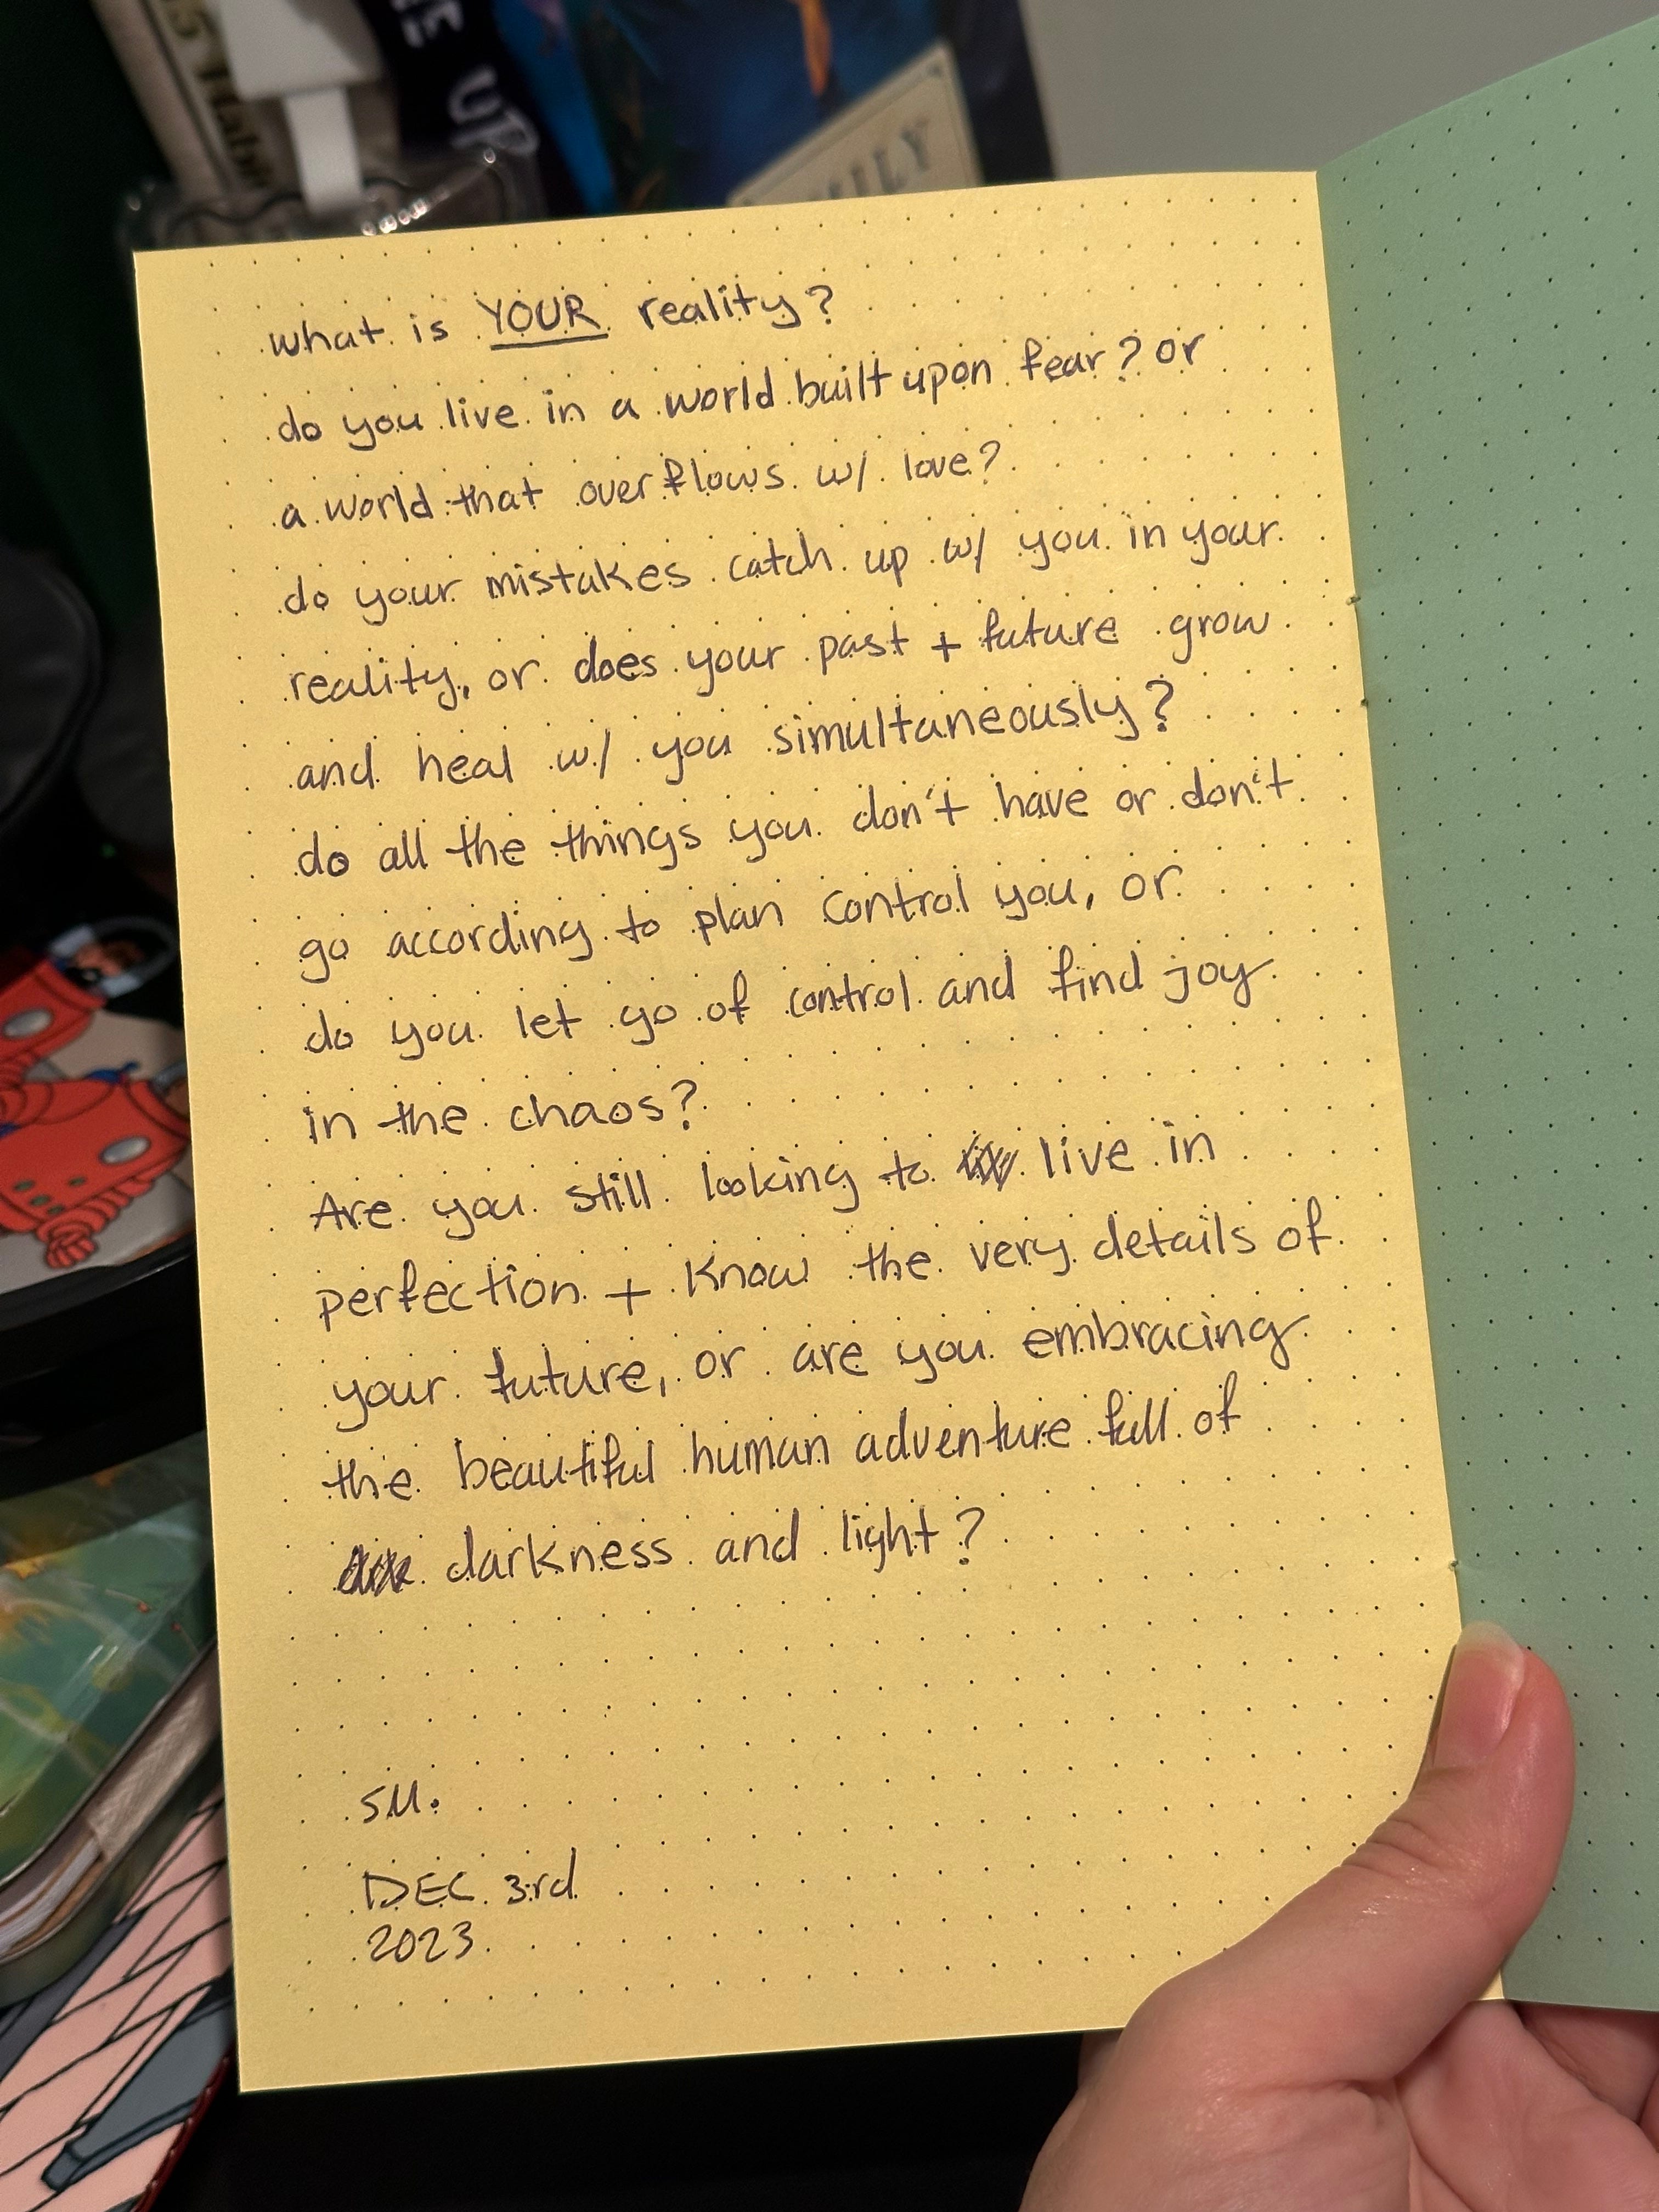 15 Habi
E UP
ILY
what is YOUR reality?
do you live in a world built upon fear? or
a world that overflows w/ love?
do your mistakes catch up w/ you in your
reality, or does your past + future grow
and heal w/ you simultaneously?
do all the things you don't have or don't
go according to plan control you, or
do you let go of control and find joy
in the chaos?
Are you still looking to live in
perfection + know the very details of
your future, or are you embracing
the beautiful human adventure full of
darkness and light?
SM.
DEC 3rd
2023